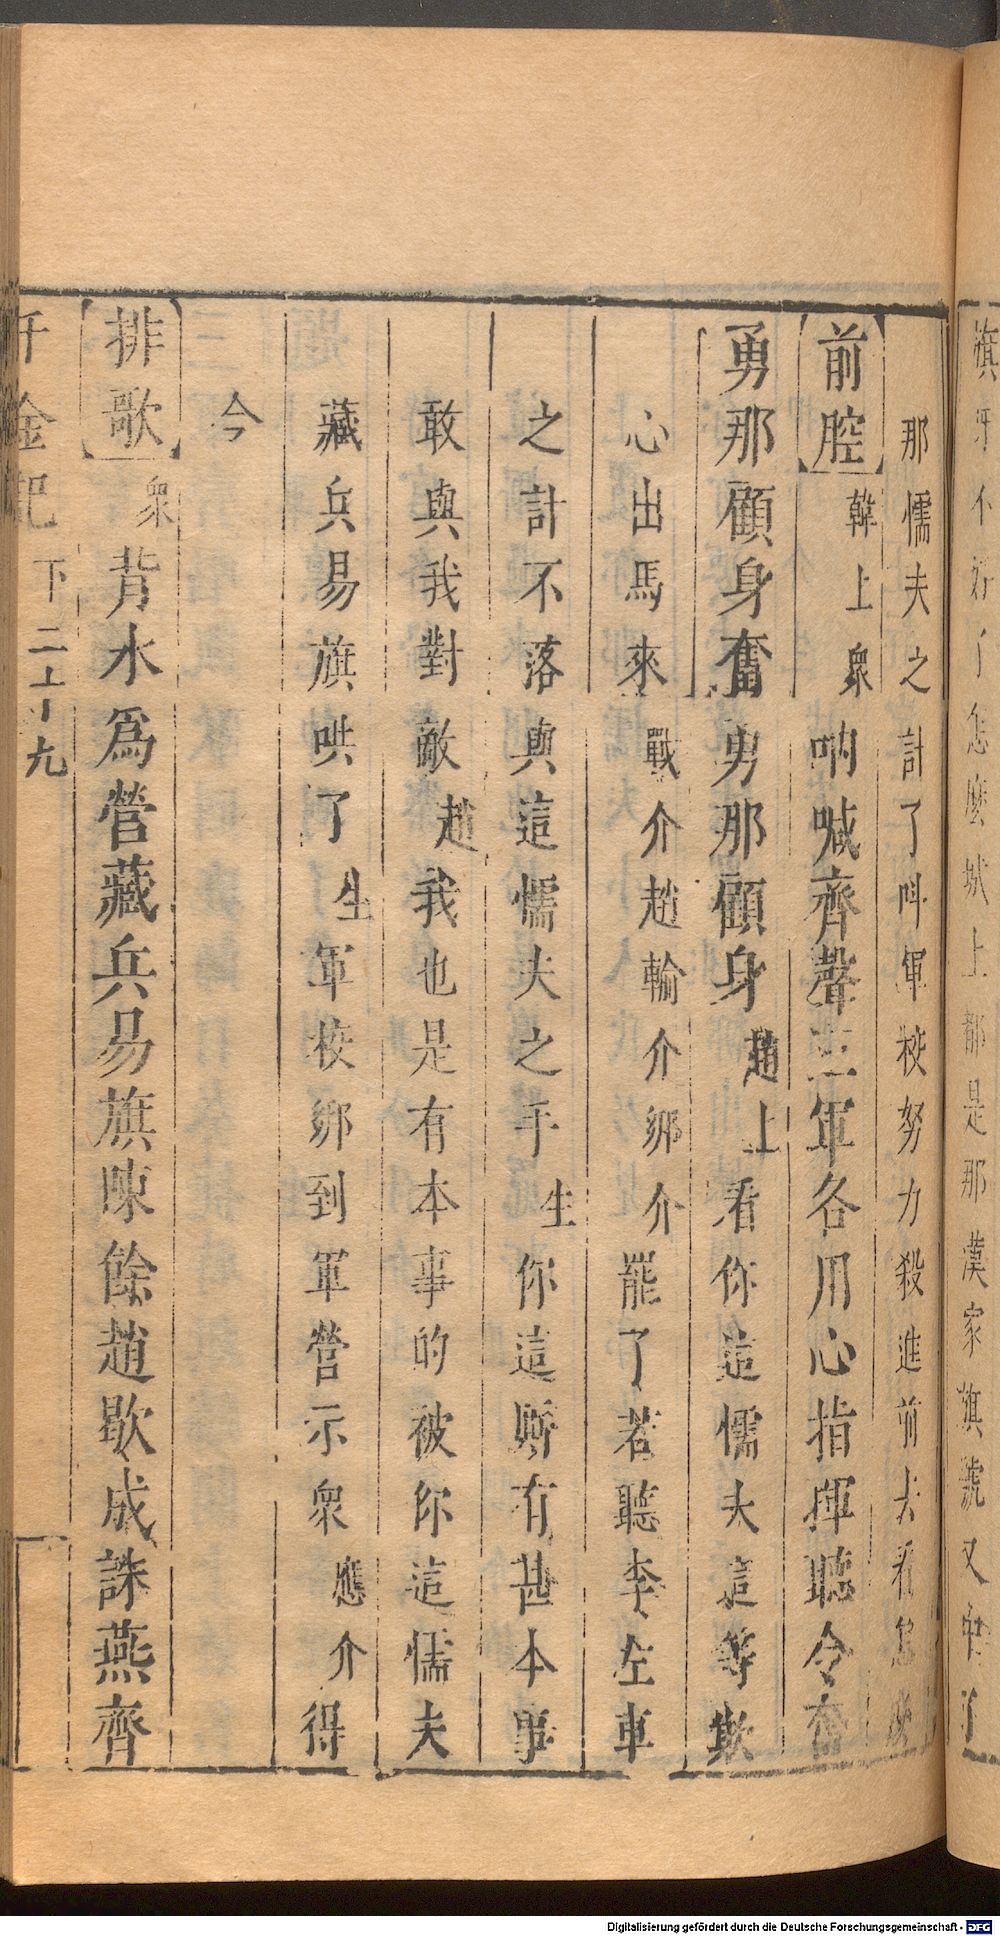 旗牙不好了怎麽城上都是那漢家旗號又中了
那懦夫之計了呌軍校努力殺進前去看怎
前腔韓上衆吶喊齊聲三軍各用心指揮聽令奮
勇那顧身奮勇那顧身趙上看你這懦夫這等欺
心出馬來戰介趙輸介綁介罷了若聽李左車
之計不落與這懦夫之手生你這厮有甚本事
敢與我對敵趙我也是有本事的被你這懦夫
藏兵易旗哄了生軍校綁到軍營示衆應介得
今
排歌衆背水爲營藏兵易旗陳餘趙歇成誅燕齊
千金記 下 二十九
Digitalisierung gefördert durch die Deutsche Forschungsgemeinschaft - DFG